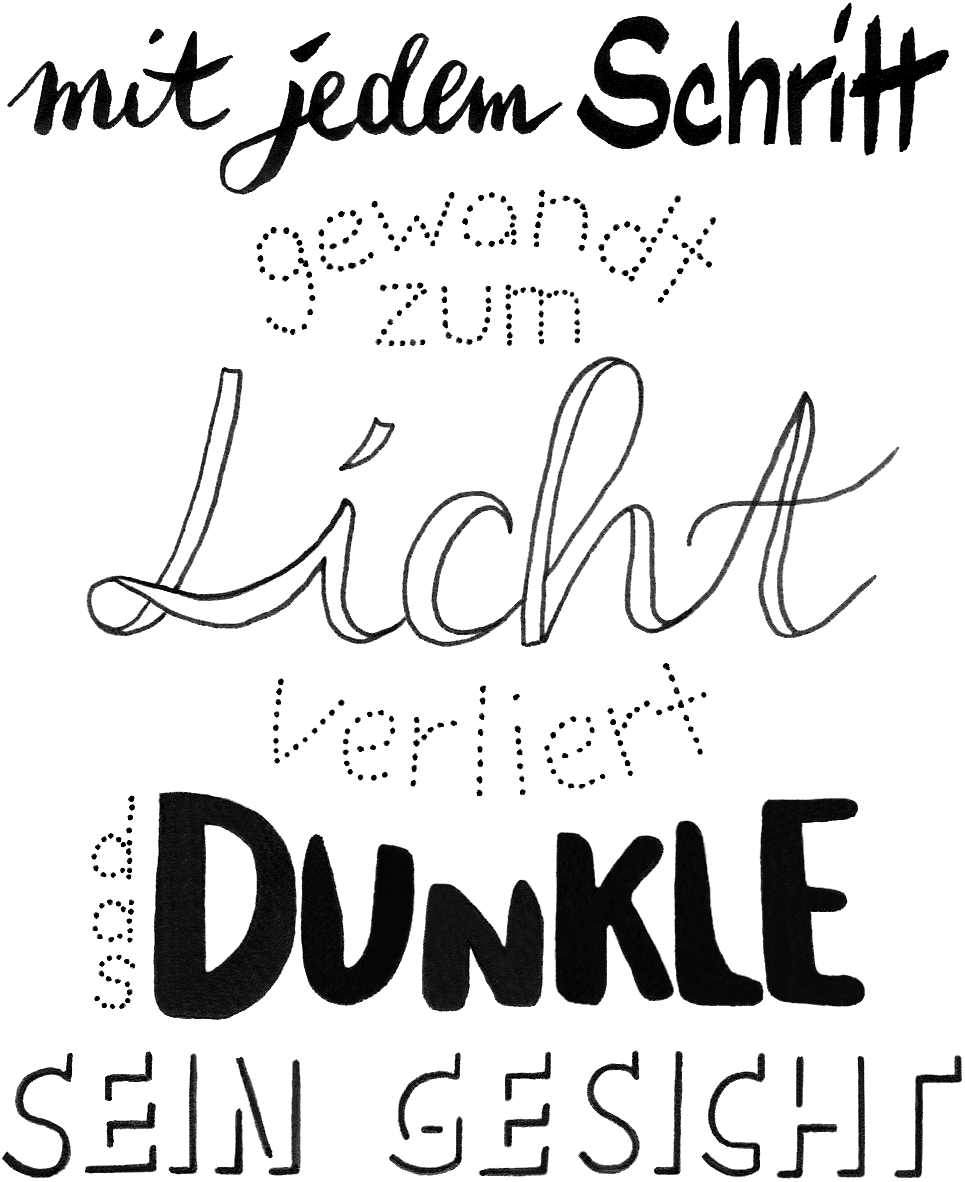 mit jedem Schritt
gewandt
zum
Licht
verliert
das DUNKLE
SEIN GESICHT